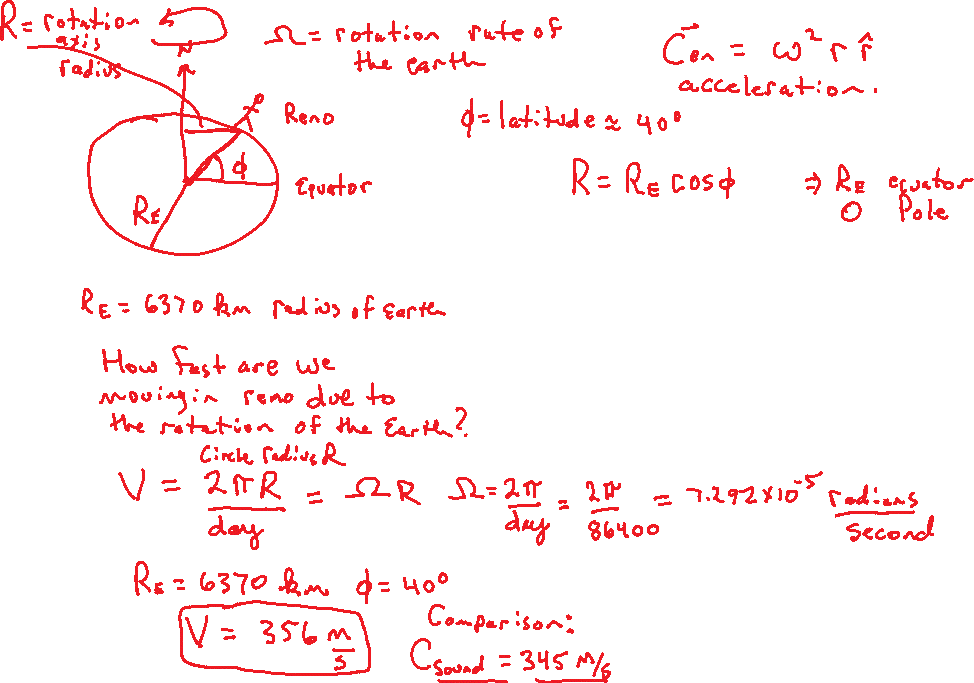 R = rotation
axis
radius
N
Ω = rotation rate of
the earth
C⃗en = ω² r r̂
acceleration.
Reno
ϕ = latitude ≈ 40°
ϕ
Equator
R = RE cosϕ ⇒ RE equator
O Pole
RE
RE = 6370 km radius of Earth
How fast are we
moving in reno due to
the rotation of the Earth?
Circle radius R
V = 2πR/day = ΩR Ω = 2π/day = 2π/86400 = 7.292×10⁻⁵ radians/second
RE = 6370 km ϕ = 40°
V = 356 m/s
Comparison:
Csound = 345 m/s